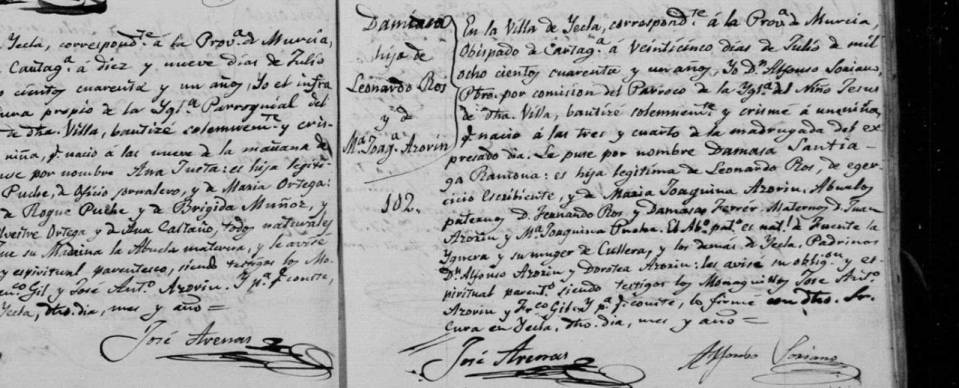 Yecla, correspond.te á la Prov.a de Murcia,
Cartag.a á diez y nueve dias de Julio
cientos cuarenta y un años, Yo el infra
cura propio de la Ygl.a Parroquial del
de dha. Villa, bautizé solemnem.te y cris-
niña, q. nacio á las nueve de la mañana de
use por nombre Ana Justa: es hija legiti-
Puche, de oficio jornalero, y de Maria Ortega:
de Roque Puche, y de Brigida Muñoz, y
Silvestre Ortega y de Ana Castaño, todos naturales
ue su Madrina la Abuela materna, y le avisé
y espiritual parentesco, siendo testigos los Mo-
Gil y José Ant.o Azorin. Y p.a q. conste,
Yecla, dho. dia, mes y año=
José Arenas
Damiasa
hija de
Leonardo Ros
y d
M.a Joaq.a Azorin
102.
En la Villa de Yecla, correspond.te á la Prov.a de Murcia,
Obispado de Cartag.a á veinticinco dias de Julio de mil
ocho cientos cuarenta y un años, Yo D.n Alfonso Soriano,
Pbro. por comision del Parroco de la Ygl.a del Niño Jesus
de dha. Villa, bautizé solemnem.te y crismé á una niña,
q. nacio á las tres y cuarto de la madrugada del ex
presado dia. Le puse por nombre Damasa Santia-
ga Ramona: es hija legitima de Leonardo Ros, de eger-
cicio Escribiente, y de Maria Joaquina Azorin. Abuelos
paternos D. Fernando Ros y Damasa Ferrér. Maternos D. Juan
Azorin y M.a Joaquina. El Ab.o pat.o es nat.l d Fuente la
Yguera y su muger de Cullera, y los demas de Yecla, Padrinos
D.n Alfonso Azorin y Dorotea Azorin: les avisé su oblig.on y es
piritual parent.o siendo testigos los Monaguillos Jose Ant.o
Azorin y Fr.co Gil. Y p.a q. conste, lo firmé con dho. Sr.
Cura en Yecla, dho. dia, mes y año=
José Arenas
Alfonso Soriano